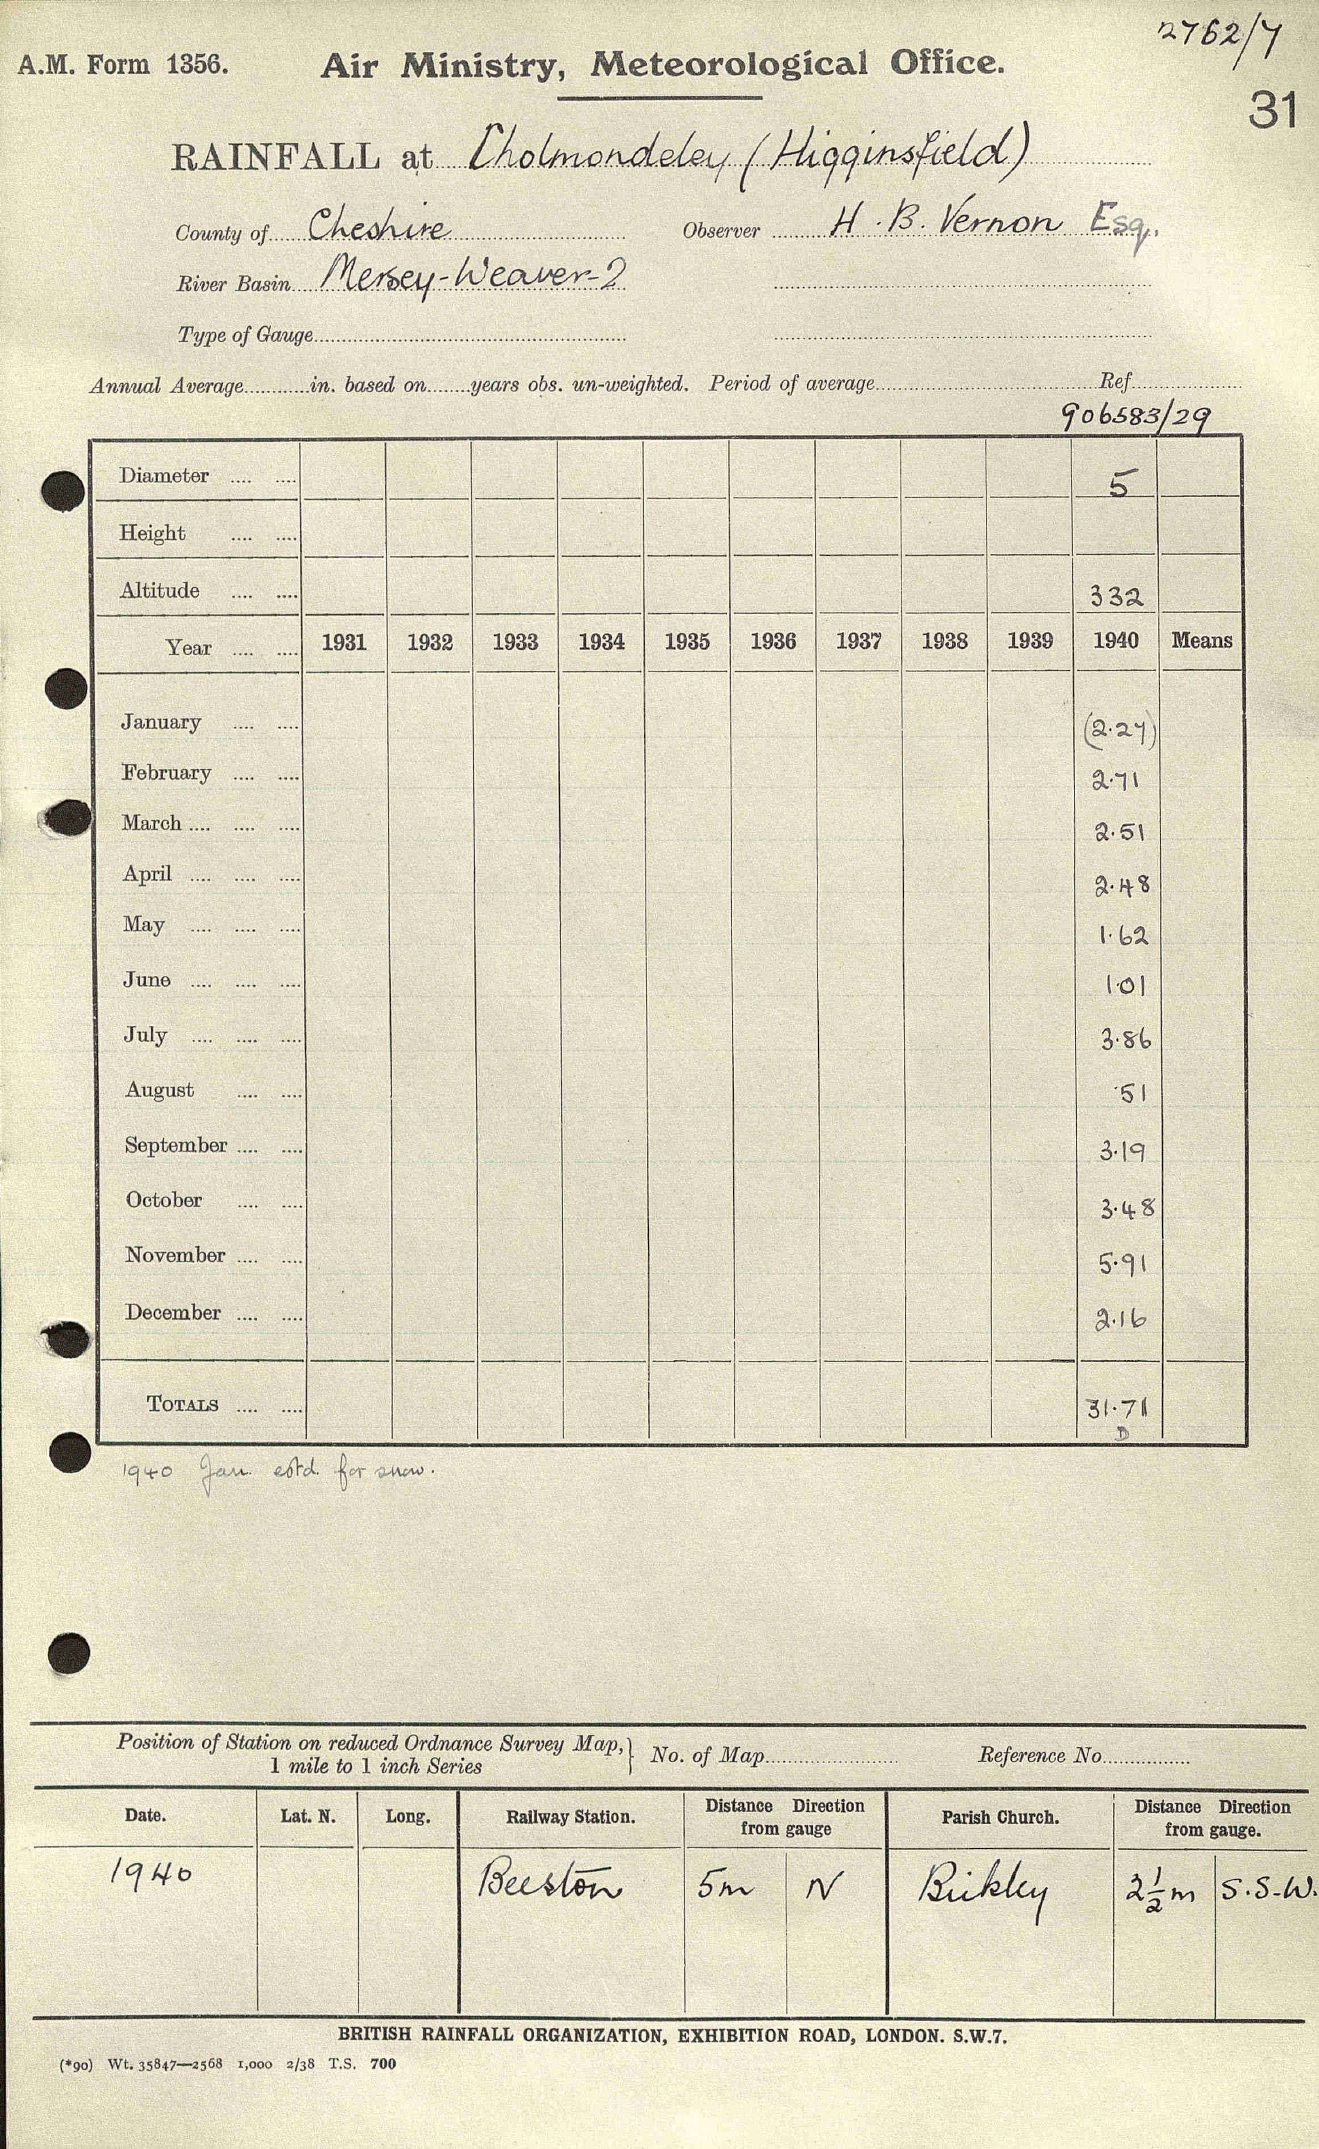 2762/7
A.M. Form 1356. Air Ministry, Meteorological Office.
31
RAINFALL at Cholmondeley (Higginsfield)
County of Cheshire Observer H. B. Vernon Esq.
River Basin Mersey-Weaver-2
Type of Gauge
Annual Average in. based on years obs. un-weighted. Period of average Ref
906583/29
Diameter 5
Height
Altitude 332
Year 1931 1932 1933 1934 1935 1936 1937 1938 1939 1940 Means
January (2.27)
February 2.71
March 2.51
April 2.48
May 1.62
June 1.01
July 3.86
August .51
September 3.19
October 3.48
November 5.91
December 2.16
TOTALS 31.71
D
1940 Jan. estd. for snow.
Position of Station on reduced Ordnance Survey Map, } No. of Map Reference No.
1 mile to 1 inch Series
Date. Lat. N. Long. Railway Station. Distance Direction from gauge Parish Church. Distance Direction from gauge.
1940 Beeston 5m N Bickley 2½m S.S.W.
BRITISH RAINFALL ORGANIZATION, EXHIBITION ROAD, LONDON. S.W.7.
(*90) Wt. 35847—2568 1,000 2/38 T.S. 700